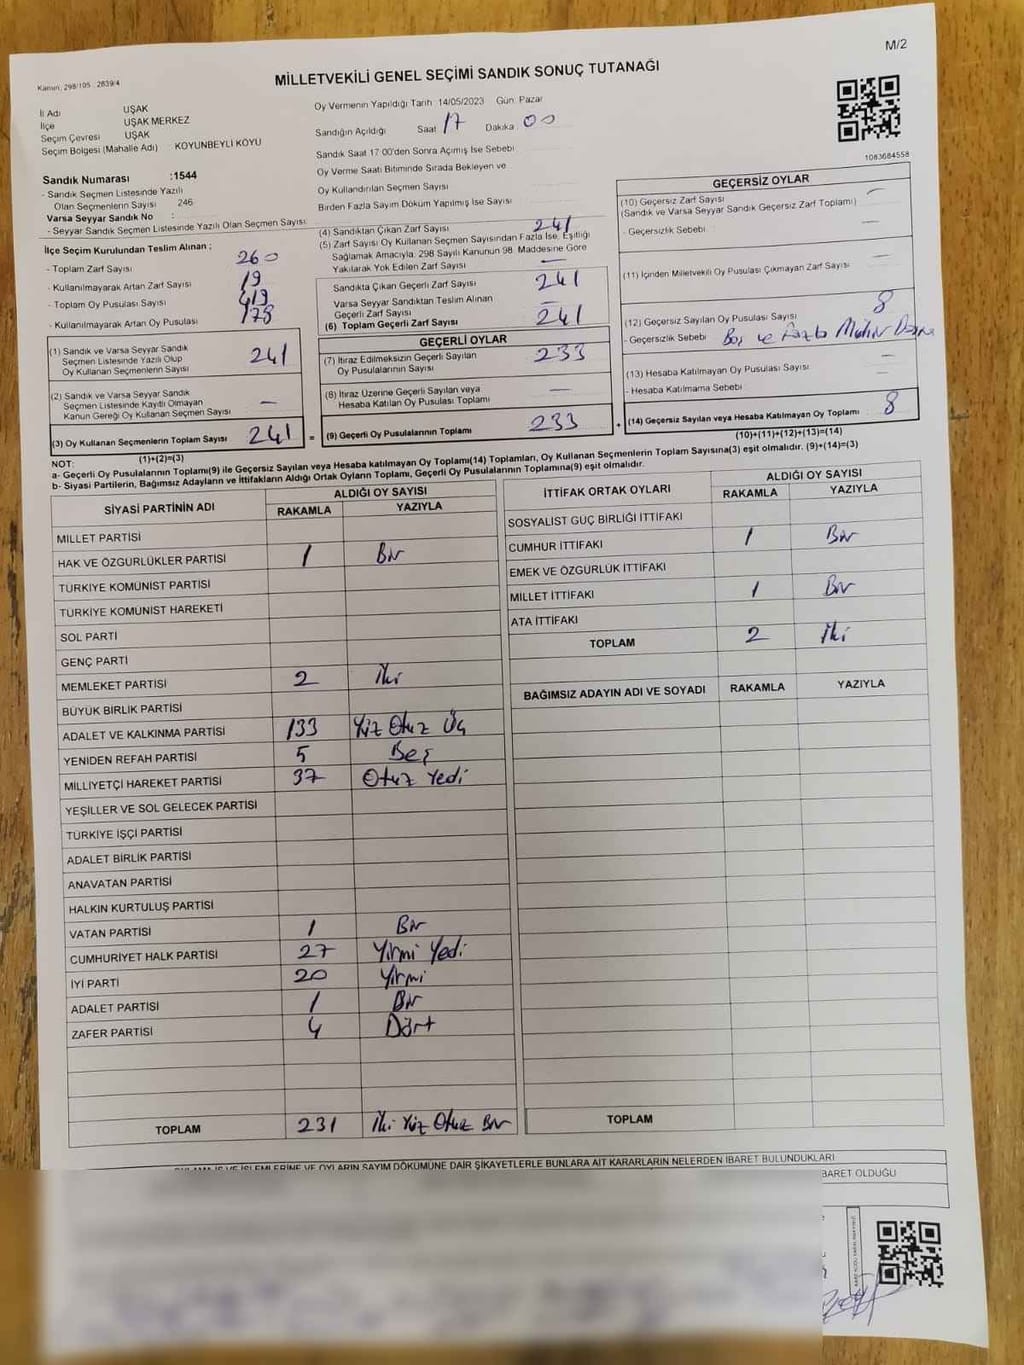 M/2
Kanun, 298/105 2839/4
MİLLETVEKİLİ GENEL SEÇİMİ SANDIK SONUÇ TUTANAĞI
İl Adı UŞAK
İlçe UŞAK MERKEZ
Seçim Çevresi UŞAK
Seçim Bölgesi (Mahalle Adı) KOYUNBEYLİ KÖYÜ
Sandık Numarası :1544
- Sandık Seçmen Listesinde Yazılı
Olan Seçmenlerin Sayısı 246
Varsa Seyyar Sandık No :
- Seyyar Sandık Seçmen Listesinde Yazılı Olan Seçmen Sayısı
İlçe Seçim Kurulundan Teslim Alınan ;
- Toplam Zarf Sayısı 260
- Kullanılmayarak Artan Zarf Sayısı 19
- Toplam Oy Pusulası Sayısı 419
- Kullanılmayarak Artan Oy Pusulası 178
(1) Sandık ve Varsa Seyyar Sandık
Seçmen Listesinde Yazılı Olup
Oy Kullanan Seçmenlerin Sayısı 241
(2) Sandık ve Varsa Seyyar Sandık
Seçmen Listesinde Kayıtlı Olmayan
Kanun Gereği Oy Kullanan Seçmen Sayısı —
(3) Oy Kullanan Seçmenlerin Toplam Sayısı 241
(1)+(2)=(3)
Oy Vermenin Yapıldığı Tarih 14/05/2023 Gün. Pazar
Sandığın Açıldığı Saat 17 Dakika 00
Sandık Saat 17:00'den Sonra Açılmış İse Sebebi
Oy Verme Saati Bitiminde Sırada Bekleyen ve
Oy Kullandırılan Seçmen Sayısı
Birden Fazla Sayım Döküm Yapılmış İse Sayısı
(4) Sandıktan Çıkan Zarf Sayısı 241
(5) Zarf Sayısı Oy Kullanan Seçmen Sayısından Fazla İse, Eşitliği
Sağlamak Amacıyla, 298 Sayılı Kanunun 98. Maddesine Göre
Yakılarak Yok Edilen Zarf Sayısı —
Sandıkta Çıkan Geçerli Zarf Sayısı 241
Varsa Seyyar Sandıktan Teslim Alınan
Geçerli Zarf Sayısı —
(6) Toplam Geçerli Zarf Sayısı 241
GEÇERLİ OYLAR
(7) İtiraz Edilmeksizin Geçerli Sayılan
Oy Pusulalarının Sayısı 233
(8) İtiraz Üzerine Geçerli Sayılan veya
Hesaba Katılan Oy Pusulası Toplamı —
= (9) Geçerli Oy Pusulalarının Toplamı 233 +
1083684558
GEÇERSİZ OYLAR
(10) Geçersiz Zarf Sayısı —
(Sandık ve Varsa Seyyar Sandık Geçersiz Zarf Toplamı)
- Geçersizlik Sebebi —
(11) İçinden Milletvekili Oy Pusulası Çıkmayan Zarf Sayısı —
(12) Geçersiz Sayılan Oy Pusulası Sayısı 8
- Geçersizlik Sebebi Boş ve Fazla Mühür
(13) Hesaba Katılmayan Oy Pusulası Sayısı —
- Hesaba Katılmama Sebebi —
(14) Geçersiz Sayılan veya Hesaba Katılmayan Oy Toplamı 8
(10)+(11)+(12)+(13)=(14)
NOT:
a- Geçerli Oy Pusulalarının Toplamı(9) ile Geçersiz Sayılan veya Hesaba katılmayan Oy Toplamı(14) Toplamları, Oy Kullanan Seçmenlerin Toplam Sayısına(3) eşit olmalıdır. (9)+(14)=(3)
b- Siyasi Partilerin, Bağımsız Adayların ve İttifakların Aldığı Ortak Oyların Toplamı, Geçerli Oy Pusulalarının Toplamına(9) eşit olmalıdır.
SİYASİ PARTİNİN ADI ALDIĞI OY SAYISI
RAKAMLA YAZIYLA
MİLLET PARTİSİ
HAK VE ÖZGÜRLÜKLER PARTİSİ 1 Bir
TÜRKİYE KOMÜNİST PARTİSİ
TÜRKİYE KOMÜNİST HAREKETİ
SOL PARTİ
GENÇ PARTİ
MEMLEKET PARTİSİ 2 İki
BÜYÜK BİRLİK PARTİSİ
ADALET VE KALKINMA PARTİSİ 133 Yüz Otuz Üç
YENİDEN REFAH PARTİSİ 5 Beş
MİLLİYETÇİ HAREKET PARTİSİ 37 Otuz Yedi
YEŞİLLER VE SOL GELECEK PARTİSİ
TÜRKİYE İŞÇİ PARTİSİ
ADALET BİRLİK PARTİSİ
ANAVATAN PARTİSİ
HALKIN KURTULUŞ PARTİSİ
VATAN PARTİSİ 1 Bir
CUMHURİYET HALK PARTİSİ 27 Yirmi Yedi
İYİ PARTİ 20 Yirmi
ADALET PARTİSİ 1 Bir
ZAFER PARTİSİ 4 Dört
TOPLAM 231 İki Yüz Otuz Bir
İTTİFAK ORTAK OYLARI ALDIĞI OY SAYISI
RAKAMLA YAZIYLA
SOSYALİST GÜÇ BİRLİĞİ İTTİFAKI
CUMHUR İTTİFAKI 1 Bir
EMEK VE ÖZGÜRLÜK İTTİFAKI
MİLLET İTTİFAKI 1 Bir
ATA İTTİFAKI
TOPLAM 2 İki
BAĞIMSIZ ADAYIN ADI VE SOYADI RAKAMLA YAZIYLA
TOPLAM
İŞ VE İŞLEMLERİNE VE OYLARIN SAYIM DÖKÜMÜNE DAİR ŞİKAYETLERLE BUNLARA AİT KARARLARIN NELERDEN İBARET BULUNDUKLARI
İBARET OLDUĞU